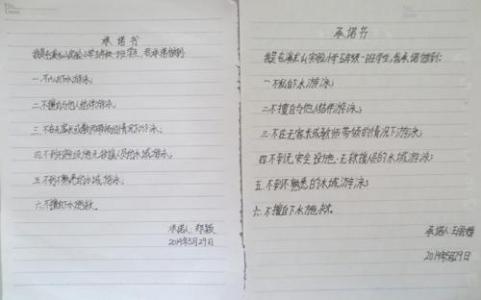 承诺书
一.不私自下水游泳。
二.不擅自与他人结伴游泳。
三.不在无家长或教师带领的情况下游泳。
四.不到无安全设施、无救援人员的水域游泳。
五.不到不熟悉的水域游泳。
六.不擅自下水施救。
承诺人:
2014年5月29日
承诺书
一.不私自下水游泳;
二.不擅自与他人结伴游泳;
三.不在无家长或教师带领的情况下游泳;
四.不到无安全设施、无救援人员的水域游泳;
五.不到不熟悉的水域游泳;
六.不擅自下水施救。
承诺人:
2014年5月29日